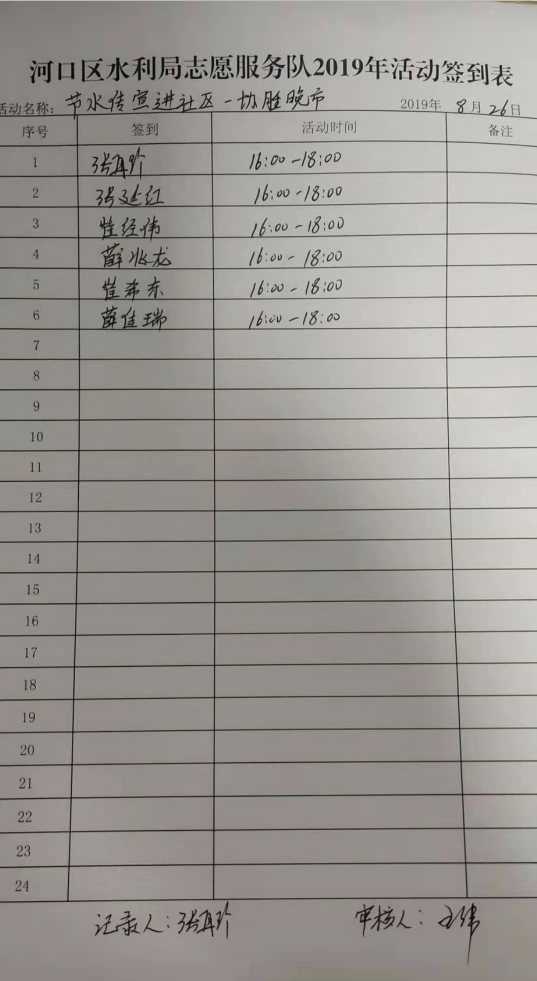 河口区水利局志愿服务队2019年活动签到表
活动名称：节水传宣进社区-协胜晚市 2019年 8月26日
序号 签到 活动时间 备注
1 张再玲 16:00-18:00
2 张延红 16:00-18:00
3 崔经伟 16:00-18:00
4 薛兆龙 16:00-18:00
5 崔希东 16:00-18:00
6 薛佳瑞 16:00-18:00
7
8
9
10
11
12
13
14
15
16
17
18
19
20
21
22
23
24
记录人：张再玲 审核人：王伟